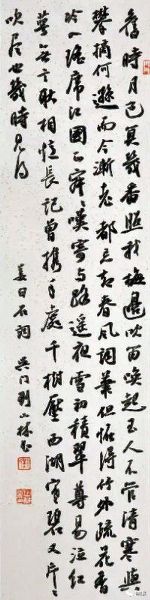 舊時月色算幾番照我梅邊吹笛喚起玉人不管清寒與
攀摘何遜而今漸老都忘卻春風詞筆但怪得竹外疏花香
冷入瑤席江國正寂寂嘆寄與路遙夜雪初積翠尊易泣紅
萼無言耿相憶長記曾攜手處千樹壓西湖寒碧又片片
吹盡也幾時見得
姜白石詞 吳門